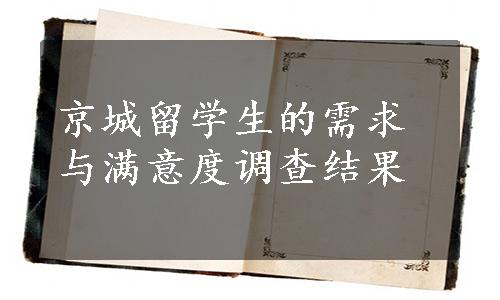 京城留学生的需求
与满意度调查结果